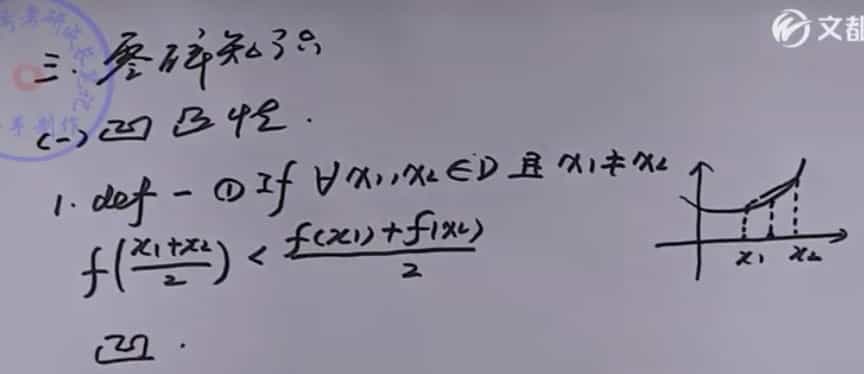 三. 零碎知识
文都
(一) 凹凸性.
1. def - ① If ∀x₁,x₂∈D 且 x₁≠x₂
f((x₁+x₂)/2) < (f(x₁)+f(x₂))/2
x₁ x₂
凹.